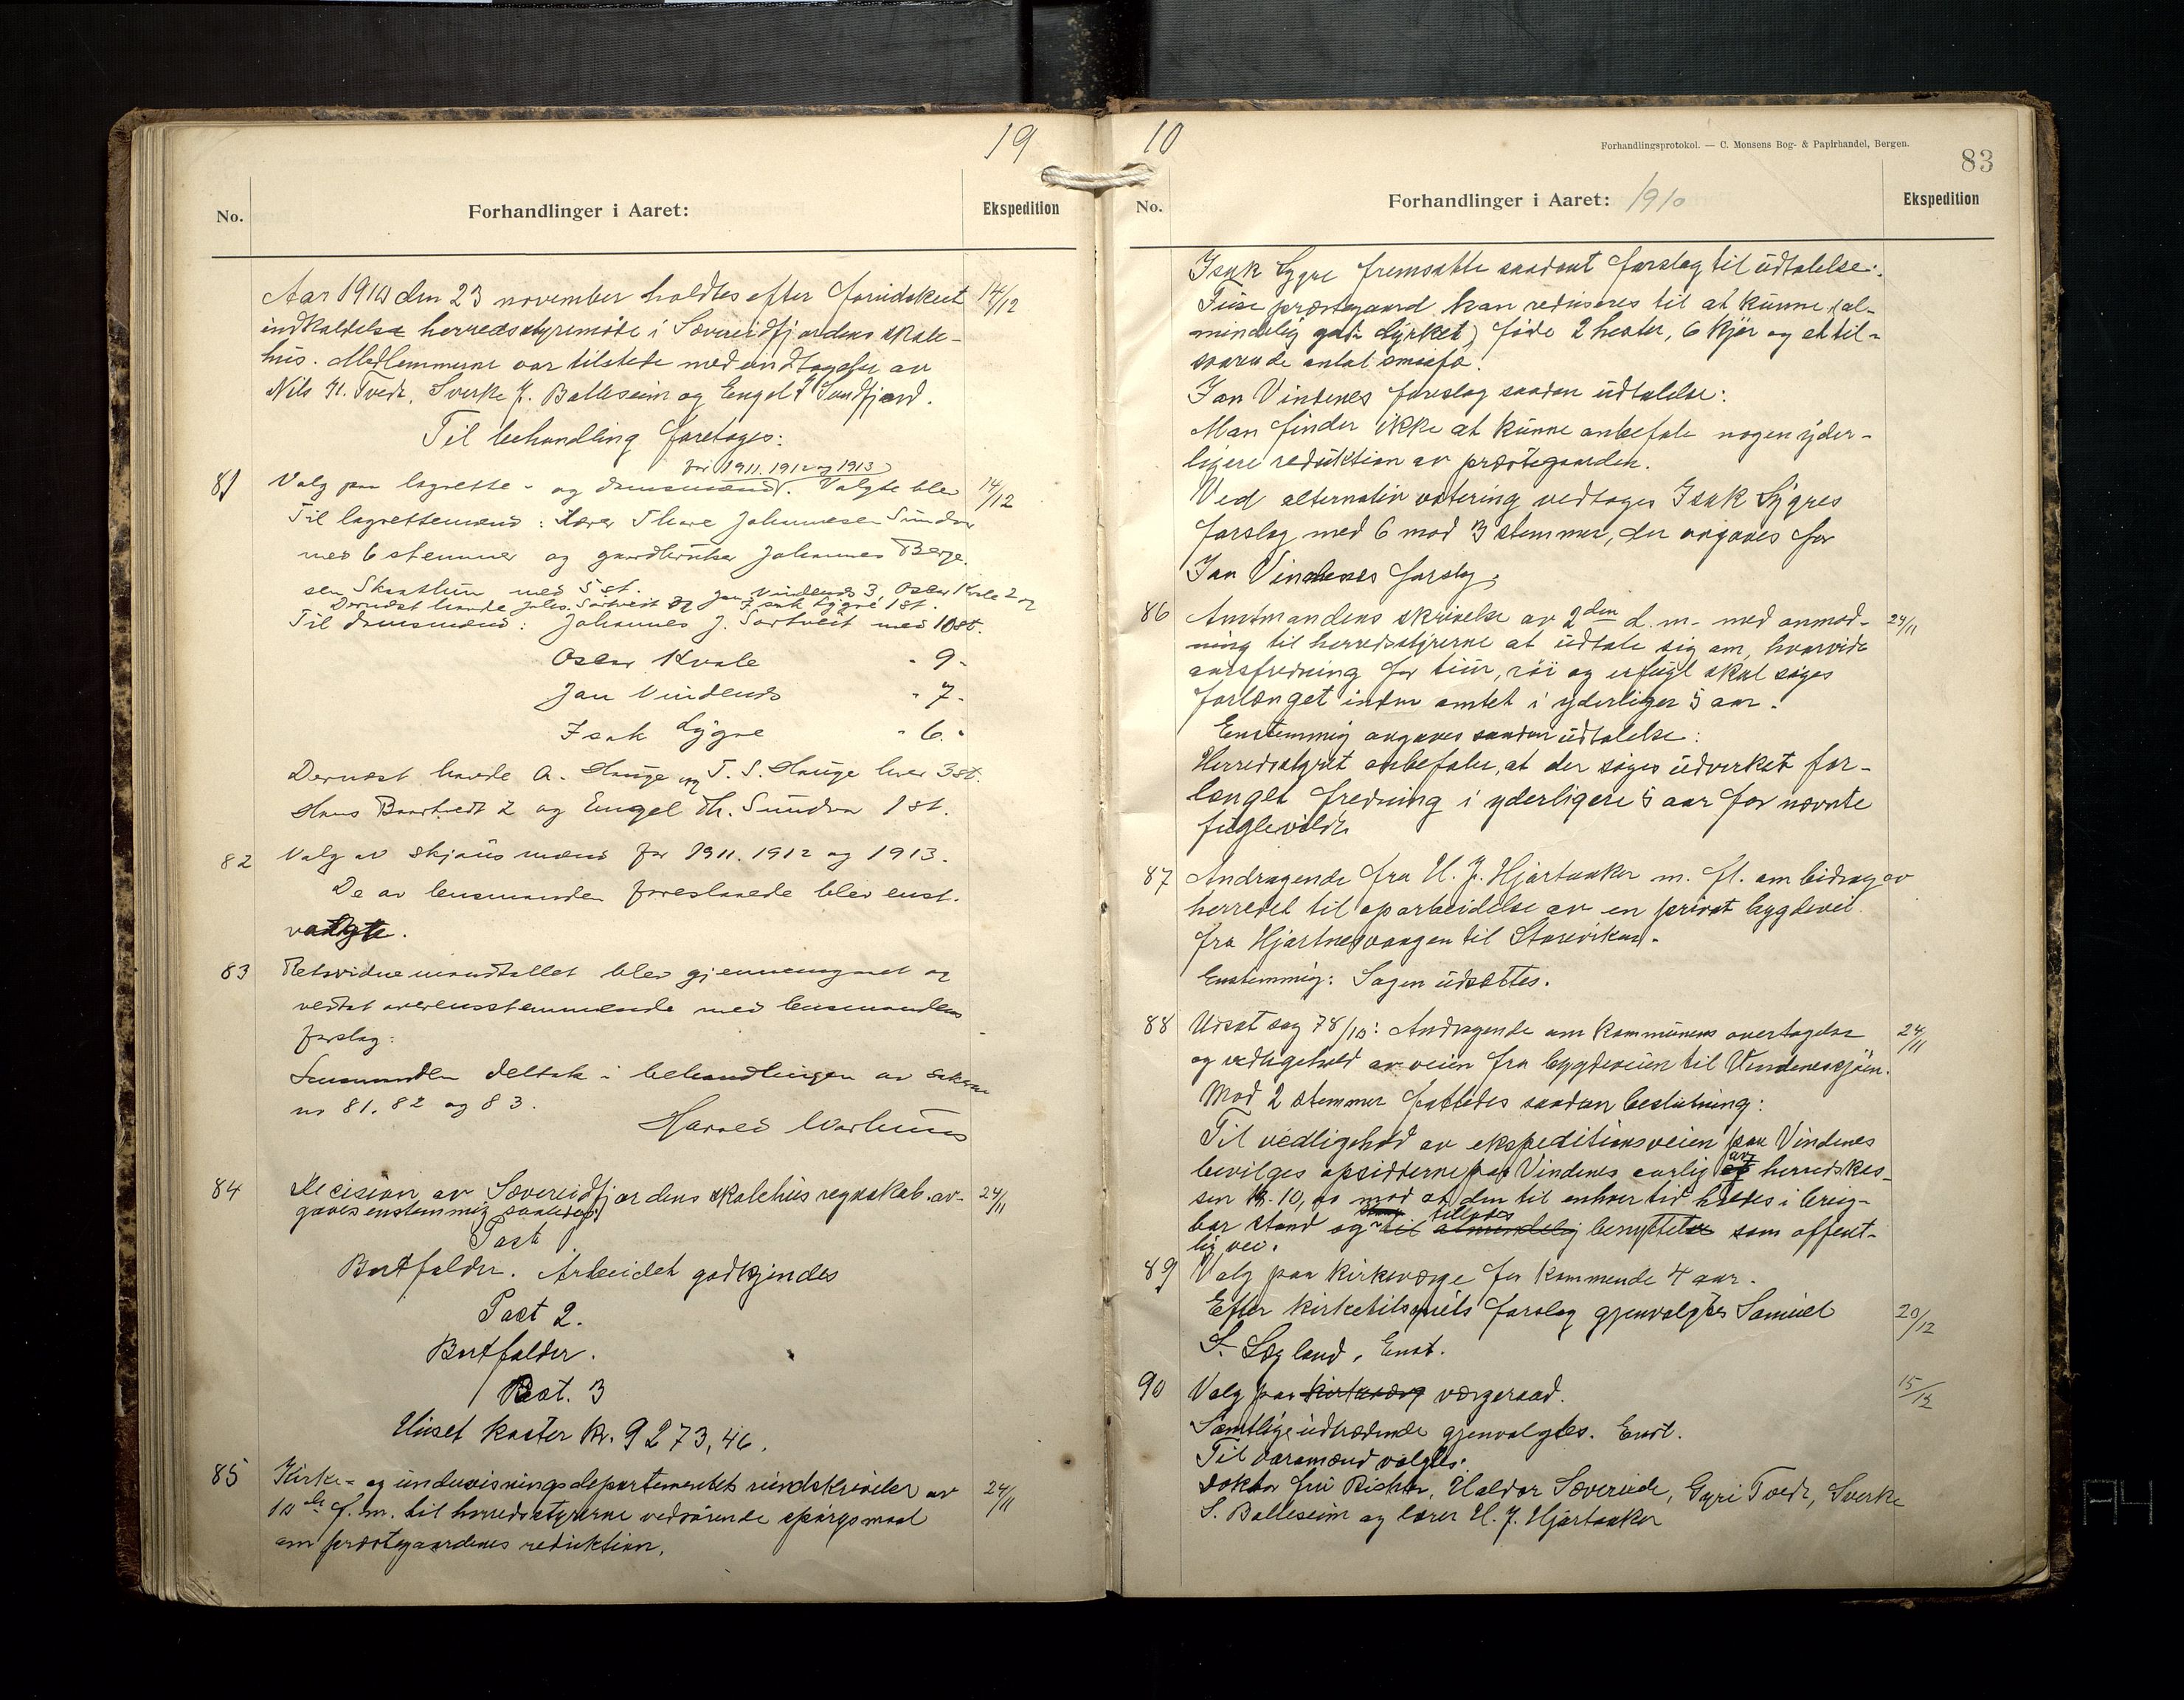 19
No.
Forhandlinger i Aaret:
Ekspedition
Aar 1910 den 23 november holdtes efter forutskeet 14/12
indkaldelse herredsstyremöte i Sævereidfjordens skole-
hus. Medlemmerne var tilstede med undtagelse av
Nils H. Tvedt, Sverke J. Balleseim og Engel T Sundfjord.
Til behandling foretages:
for 1911. 1912 og 1913
81 Valg paa lagrette- og domsmænd. Valgte blev 14/12
Til lagrettemænd: lærer Thore Johannesen Sundvor
med 6 stemmer og gaardbruker Johannes Berge-
sen Skaathun med 5 st.
Dernæst havde Johs. Sörtveit og Jan Vindenes 3, Oscar Kvale 2 og
Isak Lygre 1 st.
Til domsmænd: Johannes J. Sörtveit med 10 st.
Oscar Kvale - 9 -
Jan Vindenes - 7 -
Isak Lygre - 6 -
Dernæst havde A. Hauge og T. S. Hauge hver 3 st.
Hans Baartvedt 2 og Engel Th. Sundvor 1 st.
82 Valg av skjönsmænd for 1911. 1912 og 1913.
De av lensmanden foreslaaede blev enst.
valgte.
83 Retsvidnemandtallet blev gjennemgaaet og
vedtat overensstemmende med lensmandens
forslag:
Lensmanden deltok i behandlingen av sakerne
no 81, 82 og 83.
Harald Warhuus
84 Decision av Sævereidfjordens skolehus regnskab av- 24/11
gaves enstemmig saaledes:
Post 1
Bortfalder. Arbeidet godkjendes
Post 2.
Bortfalder.
Post. 3
Huset koster kr. 9273,46.
85 Kirke- og undervisningsdepartementets rundskrivelse av 24/11
10de f. m. til herredsstyrerne vedrörende spörgsmaal
om præstegaardenes reduktion.
10
Forhandlingsprotokol. — C. Monsens Bog- & Papirhandel, Bergen.
83
No.
Forhandlinger i Aaret: 1910
Ekspedition
Isak Lygre fremsatte saadant forslag til udtalelse:
Fuse præstegaard kan reduseres til at kunne (al-
mindelig godt dyrket) föde 2 hester, 6 kjör og et til-
svarende antal smaafæ.
Jan Vindenes foreslog saadan udtalelse:
Man finder ikke at kunne anbefale nogen yder-
ligere reduktion av præstegaarden.
Ved alternativ votering vedtages Isak Lygres
forslag med 6 mod 3 stemmer, der avgaves for
Jan Vindenes forslag.
86 Amtmandens skrivelse av 2den d. m. med anmod- 24/11
ning til herredsstyrerne at udtale sig om, hvorvidt
aarsfredning for tiur, röi og orfugl skal söges
forlænget inden amtet i yderliger 5 aar.
Enstemmig avgaves saadan udtalelse:
Herredsstyret anbefaler, at der söges udvirket for-
længet fredning i yderligere 5 aar for nævnte
fuglevildt.
87 Andragende fra H. J. Hjartaaker m. fl. om bidrag av
herredet til oparbeidelse av en privat bygdevei
fra Hjartnesvaagen til Storeviken.
Enstemmig: Sagen udsættes.
88 Udsat sag 78/10: Andragende om kommunens overtagelse 24/11
og vedligehold av veien fra bygdeveien til Vindenessjöen.
Mod 2 stemmer fattedes saadan beslutning:
Til vedligehold av ekspeditionsveien paa Vindenes
bevilges opsidderne paa Vindenes aarlig av herredskas-
sen kr. 10,00 mod at den til enhver tid holdes i brug-
bar stand og tillades til almindelig benyttelse som offent-
lig vei.
89 Valg paa kirkeværge for kommende 4 aar.
Efter kirketilsynets forslag gjenvalgtes Samuel 20/12
S. Lægland. Enst.
90 Valg paa kirkeværg værgeraad. 15/12
Samtlige udtrædende gjenvalgtes. Enst.
Til varamænd valgtes:
Doktor fru Richter, Haldor Sævereide, Guri Tvedt, Sverke
S. Balleseim og lærer H. J. Hjartaaker